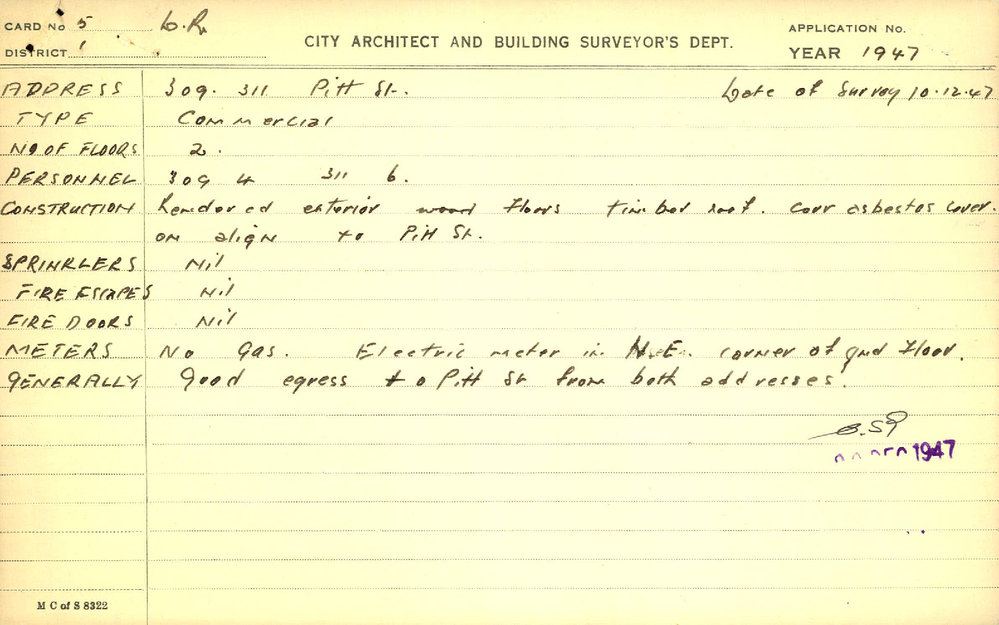 CARD No 5 L.R.
DISTRICT 1
CITY ARCHITECT AND BUILDING SURVEYOR'S DEPT.
APPLICATION No.
YEAR 1947
ADDRESS 309. 311 Pitt St. Date of Survey 10.12.47
TYPE Commercial
No OF FLOORS 2.
PERSONNEL 309 4 311 6.
CONSTRUCTION Rendered exterior wood floors timber roof. Corr asbestos cover.
on align to Pitt St.
SPRINKLERS Nil
FIRE ESCAPES Nil
FIRE DOORS Nil
METERS No Gas. Electric meter in N.E. corner of gnd floor.
GENERALLY Good egress to Pitt St from both addresses.
DEC 1947
M C of S 8322